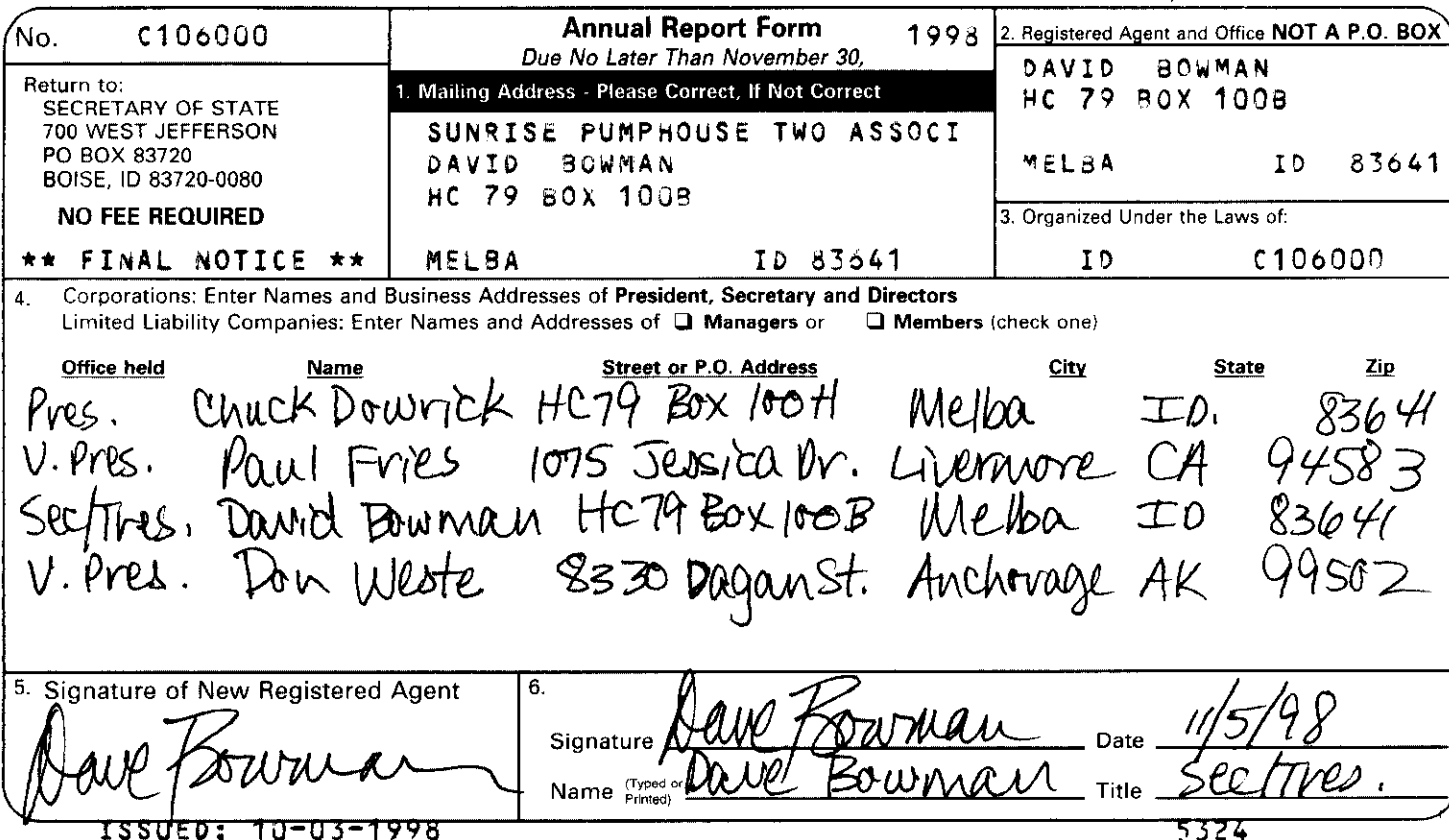 No. C106000
Annual Report Form 1998
Due No Later Than November 30,
Return to:
SECRETARY OF STATE
700 WEST JEFFERSON
PO BOX 83720
BOISE, ID 83720-0080
NO FEE REQUIRED
** FINAL NOTICE **
1. Mailing Address - Please Correct, If Not Correct
SUNRISE PUMPHOUSE TWO ASSOCI
DAVID BOWMAN
HC 79 BOX 100B
MELBA ID 83641
2. Registered Agent and Office NOT A P.O. BOX
DAVID BOWMAN
HC 79 BOX 100B
MELBA ID 83641
3. Organized Under the Laws of:
ID C106000
4. Corporations: Enter Names and Business Addresses of President, Secretary and Directors
Limited Liability Companies: Enter Names and Addresses of ❑ Managers or ❑ Members (check one)
Office held Name Street or P.O. Address City State Zip
Pres. Chuck Dowrick HC79 Box 100H Melba ID. 83641
V. Pres. Paul Fries 1075 Jessica Dr. Livermore CA 94583
Sec/Tres. David Bowman HC79 Box 100B Melba ID 83641
V. Pres. Don Weste 8330 Dagan St. Anchorage AK 99502
5. Signature of New Registered Agent
Dave Bowman
6.
Signature Dave Bowman Date 11/5/98
Name (Typed or Printed) Dave Bowman Title Sec/Tres.
ISSUED: 10-03-1998 5324